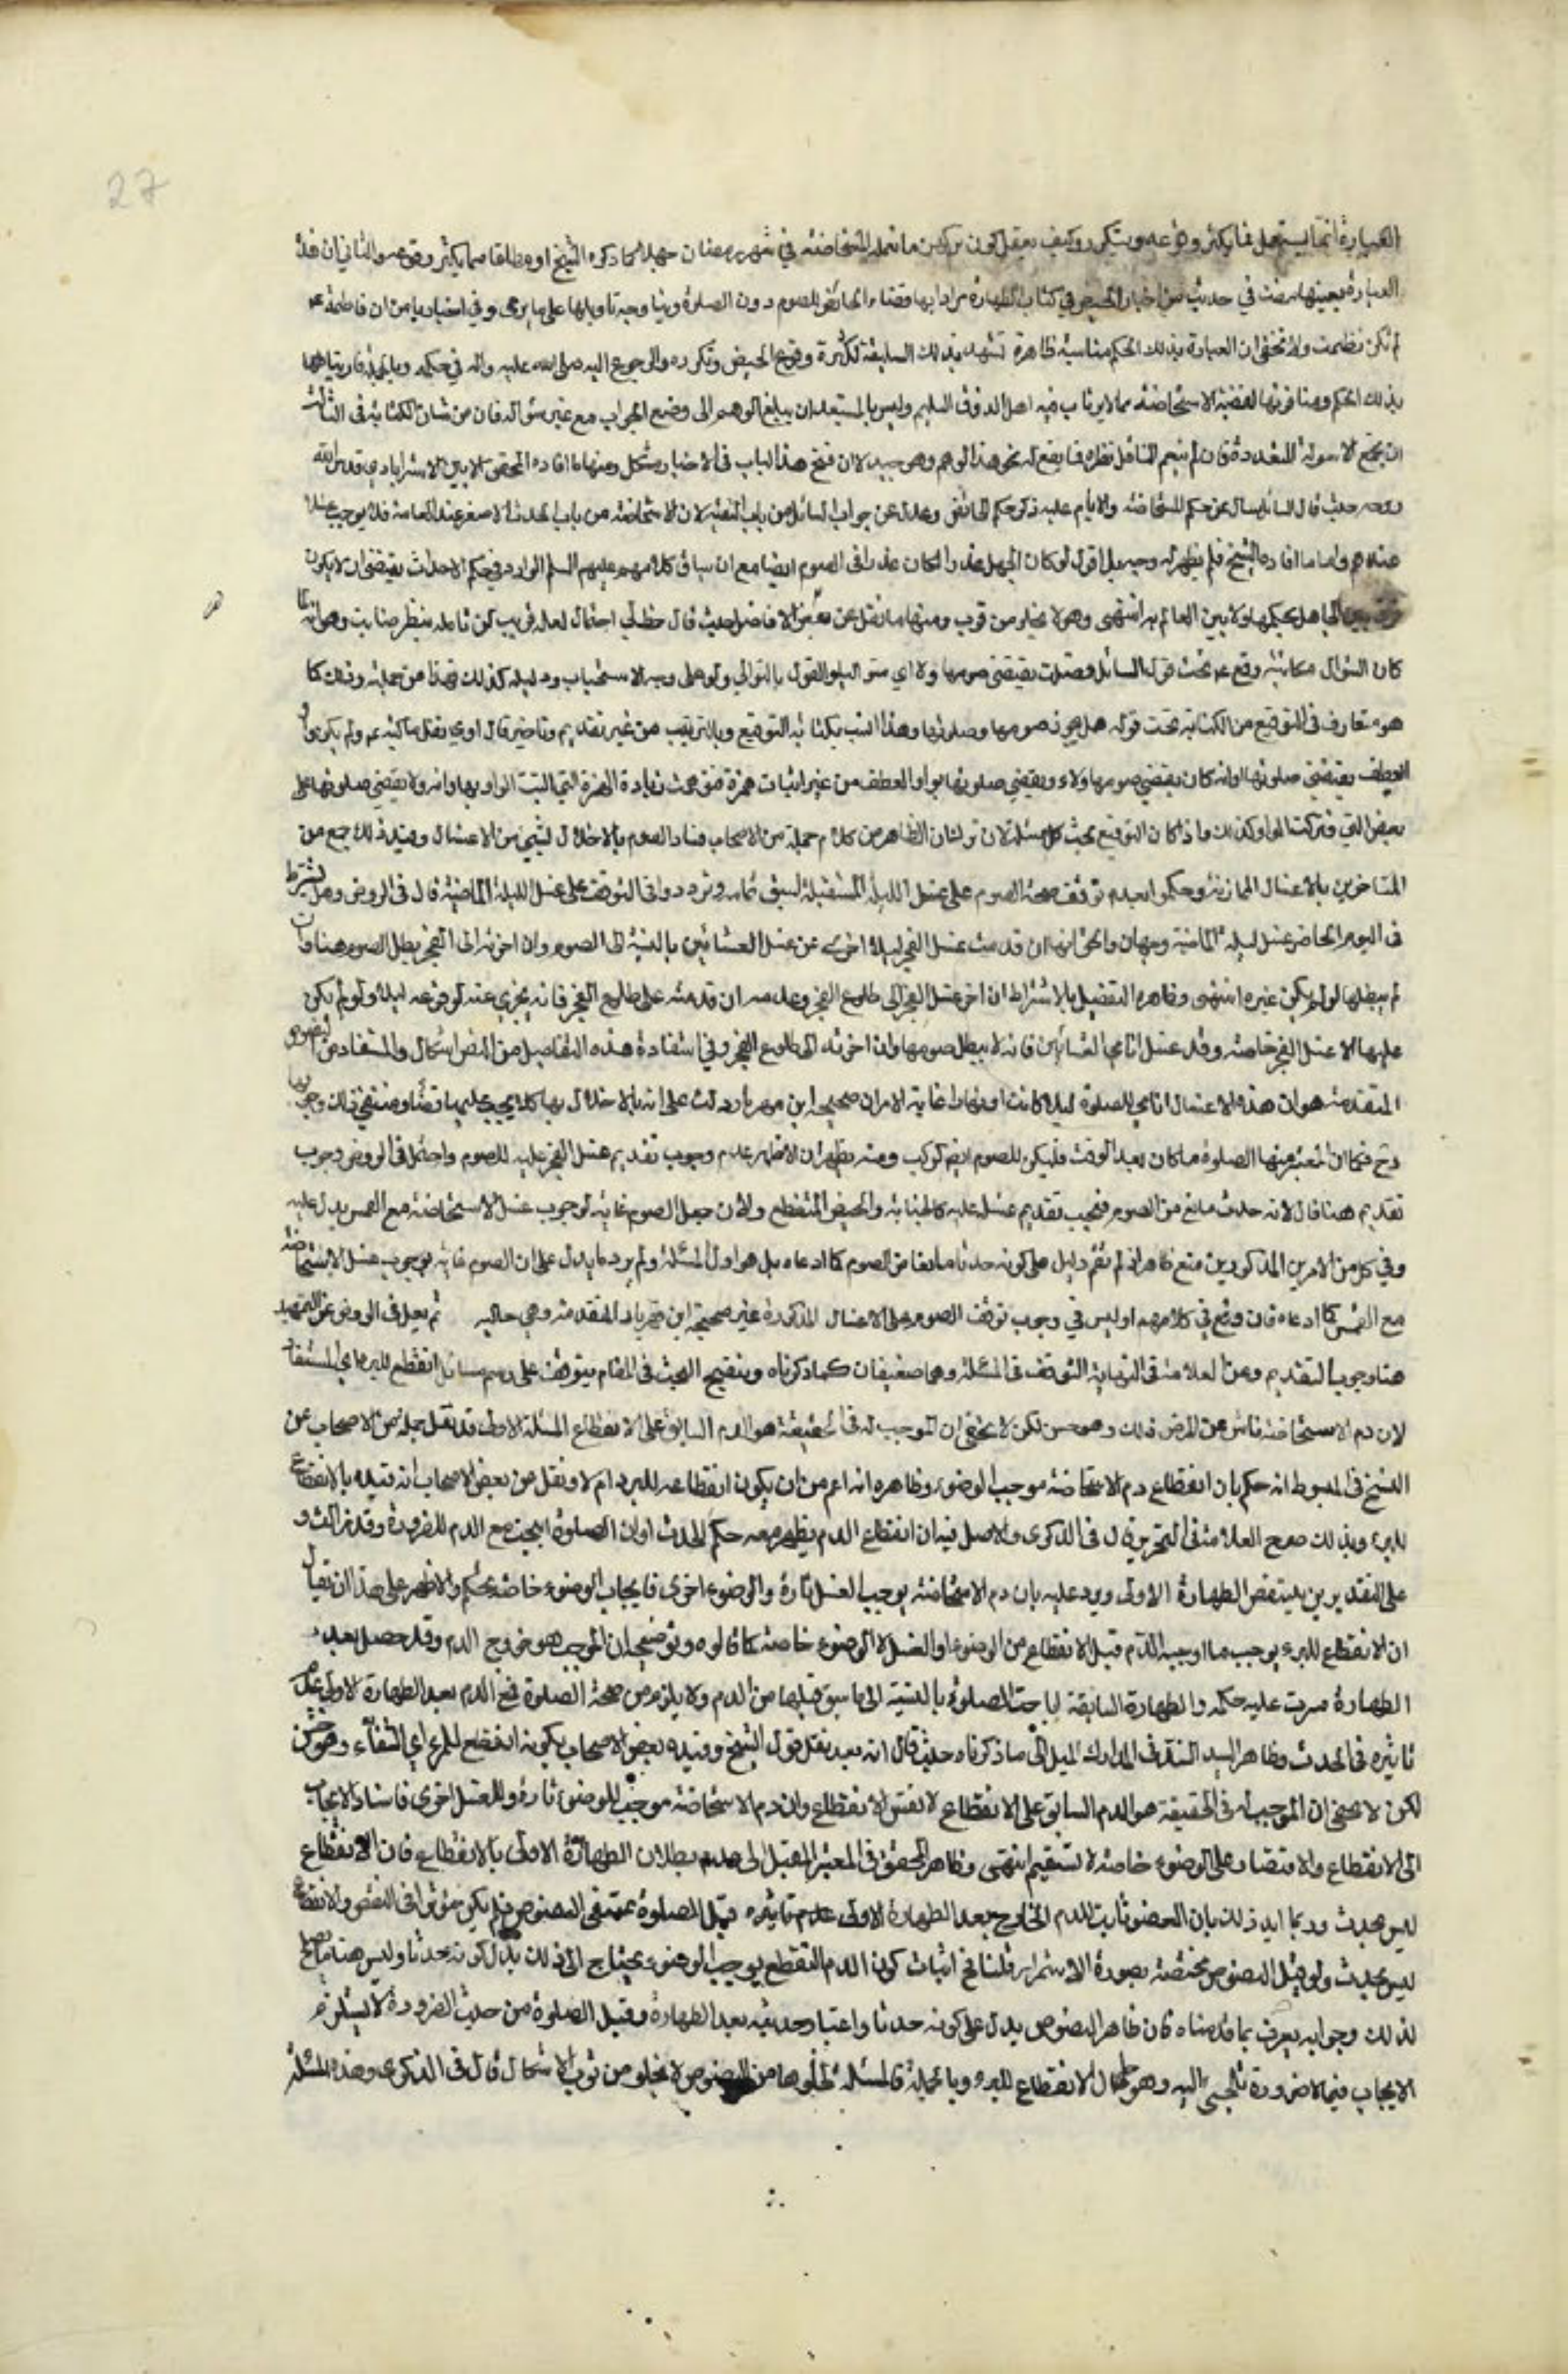 27
العبارة انما يستعمل فيما يكثر وقوعه ويتكرر وكيف يعقل كون تركهن ما تعمله المستحاضة في شهر رمضان جهلا كما ذكره الشيخ او مطلقا مما يكثر وقوعه والثاني ان هذه
العبارة بعينها مضت في حديث من اخبار الحيض في كتاب الطهارة مرادا بها قضاء الحائض للصوم دون الصلوة وبينا وجه تاويلها على ما يروى وفي اخبارنا من ان فاطمة ع
لم تكن تطمث ولا تخفى ان العبارة بذلك الحكم مناسبة ظاهرة تشهد بذلك السليقة لكثرة وقوع الحيض وتكرره والرجوع اليه صلى الله عليه واله في حكمه وبالجملة فارتباطها
بذلك الحكم ومنافرتها لقضية الاستحاضة مما لا يرتاب فيه اهل الذوق السليم وليس بالمستبعد ان يبلغ الوهم الى وضع الجواب مع غير سؤاله فان من شان الكتابة في الغالب
ان يجمع الاسولة المتعددة فان لم ينعم الناقل نظره فيها يقع له نحو هذا الوهم وهو جيد لان فتح هذا الباب في الاخبار مشكل ومنها ما افاده المحقق الامين الاسترابادي قدس الله
روحه حيث قال السائل سال عن حكم المستحاضة والامام عليه ذكر حكم الحائض وعدل عن جواب السائل من باب التقية لان الاستحاضة من باب الحدث الاصغر عند العامة فلا يوجب غسلا
عندهم واما ما افاده الشيخ فلم يظهر له وجه بل اقول لو كان الجهل عذرا لكان عذرا في الصوم ايضا مع ان سياق كلامهم عليهم السلم الوارد في حكم الاحداث يقتضي ان لا يكون
فرق بين الجاهل بحكمها ولا بين العالم به انتهى وهو لا يخلو من قرب ومنها ما نقل عن بعض الافاضل حيث قال خطر لي احتمال لعله قريب لمن تامله بنظر صائب وهو انه لما
كان السؤال مكاتبة وقع ع تحت قول السائل فصلت يقتضي صومها ولاء اي متواليا والقول بالتوالي ولو على وجه الاستحباب ودليله كذلك فهذا من جملته وذلك كما
هو متعارف في التوقيع من الكتابة تحت قوله هل يجوز صومها وصلوتها وهذا انسب بكتابة التوقيع وبالترتيب من غير تقديم وتاخير قال او لم يقل ما كتبه ع ولم يكن واو
العطف يقتضي صلوتها او انه كان يقتضي صومها ولاء ويقضي صلوتها بواو العطف من غير اثبات همزة فتوهمت زيادة الهمزة التي التبست الواو بها وانه ولا يقتضي صلوتها على
بعض التي فتركت الواو وكذلك ما ذا كان التوقيع تحت كل مسئلة لان تو لشان الظاهر من كلام جملة من الاصحاب فساد الصوم بالاخلال بشيء من الاغسال وقيد ذلك جمع من
المتاخرين بالاغسال النهارية وحكموا بعدم توقف صحة الصوم على غسل الليلة المستقبلة لسبق تمامه وترددوا في التوقف على غسل الليلة الماضية قال في الروض وهل يشترط
في اليوم الحاضر غسل ليلته الماضية وجهان والحق انها ان قدمت غسل الفجر ليلا اجزء عن غسل العشائين بالنسبة الى الصوم وان اخرته الى الفجر بطل الصوم هنا وان
لم يبطلها لو لم يكن غيره انتهى وظاهره التفصيل بالاشتراط ان اخر غسل الفجر الى طلوع الفجر وعدمه ان قدمته على طلوع الفجر فانه يجزي عنه لو وقع ليلا ولو لم يكن
عليها الا غسل الفجر خاصة وقد غسل اناي العشائين فانه لا يبطل صومها وان اخرته الى طلوع الفجر وفي استفادة هذه التفاصيل من النص اشكال والمستفاد من النصوص
المتقدمة هو ان هذه الاغسال انما هي للصلوة ليلا كانت او نهارا غاية الامر ان صحيحة ابن مهزيار دلت على انه بالاخلال بها كلا يجب عليها قضاؤه فيقتضي ذلك وجوبها
وح فكما ان المعتبر منها الصلوة ما كان بعد الوقت فليكن للصوم ايضا كذلك ومنه يظهر ان الاظهر عدم وجوب تقديم غسل الفجر عليه للصوم واحتمل في الروض وجوب
تقديم هنا قال لانه حدث مانع من الصوم فيجب تقديم غسل عليه كالجنابة والحيض المنقطع ولان جعل الصوم غاية لوجوب غسل الاستحاضة مع الغمس يدل عليه
وفي كل من الامرين المذكورين منع ظاهر اذ لم يقم دليل على كونه حدثا مانعا من الصوم كما ادعاه بل هو اول المسئلة ولم يرد ما يدل على ان الصوم غاية لوجوب غسل الاستحاضة
مع الغمس كما ادعاه فان وقع في كلامهم او ليس في وجوب توقف الصوم على الاغسال المذكورة غير صحيحة ابن مهزيار المتقدمة وهي خالية ثم نقل في الروض عن التمهيد
هنا وجوب التقديم وعن العلامة في النهاية التوقف في المسئلة وهما ضعيفان كما ذكرناه وتنقيح البحث في المقام يتوقف على رسم مسائل انقطع للبرء اي المستفاد
لان دم الاستحاضة ناش عن المرض ذلك وهو حسن لكن لا يخفى ان الموجب له في الحقيقة هو الدم السابق على الانقطاع المسئلة الاولى قد نقل جملة من الاصحاب عن
الشيخ في المبسوط انه حكم بان انقطاع دم الاستحاضة موجب الوضوء وظاهره انه اعم من ان يكون انقطاعه للبرء ام لا ونقل من بعض الاصحاب انه قيده بالانقطاع
للبرء وبذلك صرح العلامة في التحرير قال في الذكرى والاصل فيه ان انقطاع الدم يظهر معه حكم الحدث او ان الصلوة ابيحت مع الدم للضرورة وقد زالت و
على التقديرين ينتقض الطهارة الاولى ويرد عليه بان دم الاستحاضة يوجب الغسل تارة والوضوء اخرى فايجاب الوضوء خاصة تحكم والاظهر على هذا ان يقال
ان الانقطاع للبرء يوجب ما اوجبه الدم قبل الانقطاع من الوضوء او الغسل لا الوضوء خاصة كما قالوه وتوضيحه ان الموجب هو خروج الدم وقد حصل بعد
الطهارة سرت عليه حكمه والطهارة السابقة اباحت الصلوة بالنسبة الى ما سبق قبلها من الدم ولا يلزم من صحة الصلوة مع الدم بعد الطهارة الاولى عدم
تاثيره في الحدث وظاهر السيد السند في المدارك الميل الى ما ذكرناه حيث قال انه بعد نقل قول الشيخ وقيده بعض الاصحاب بكونه انقطاع للبرء اي الشفاء وهو حسن
لكن لا يخفى ان الموجب له في الحقيقة هو الدم السابق على الانقطاع لا نفس الانقطاع وان دم الاستحاضة موجب للوضوء تارة وللغسل اخرى فاسناد الايجاب
الى الانقطاع والاقتصار على الوضوء خاصة لا تستقيم انتهى وظاهر المحقق في المعتبر الميل الى عدم بطلان الطهارة الاولى بالانقطاع فان الانقطاع
ليس بحدث وربما ايد ذلك بان العفو ثابت للدم الخارج بعد الطهارة الاولى عدم تاثيره قبل الصلوة بمقتضى النصوص فلم يكن مؤثرا في النقض والانقطاع
ليس بحدث ولو قيل النصوص مختصة بصورة الاستمرار قلنا فح اثبات كون الدم المنقطع يوجب الوضوء يحتاج الى ذلك يدل كونه حدثا وليس هنا ما يصلح
لذلك وجوابه يعرف بما قدمناه فان ظاهر النصوص يدل على كونه حدثا واعتبار حدثيته بعد الطهارة وقبل الصلوة من حيث الضرورة لا يستلزم
الايجاب فيما لا ضرورة تلجئ اليه وهو حال الانقطاع للبرء وبالجملة فالمسئلة لخلوها من النصوص لا تخلو من ثوب الاشكال قال في الذكرى وهذه المسئلة